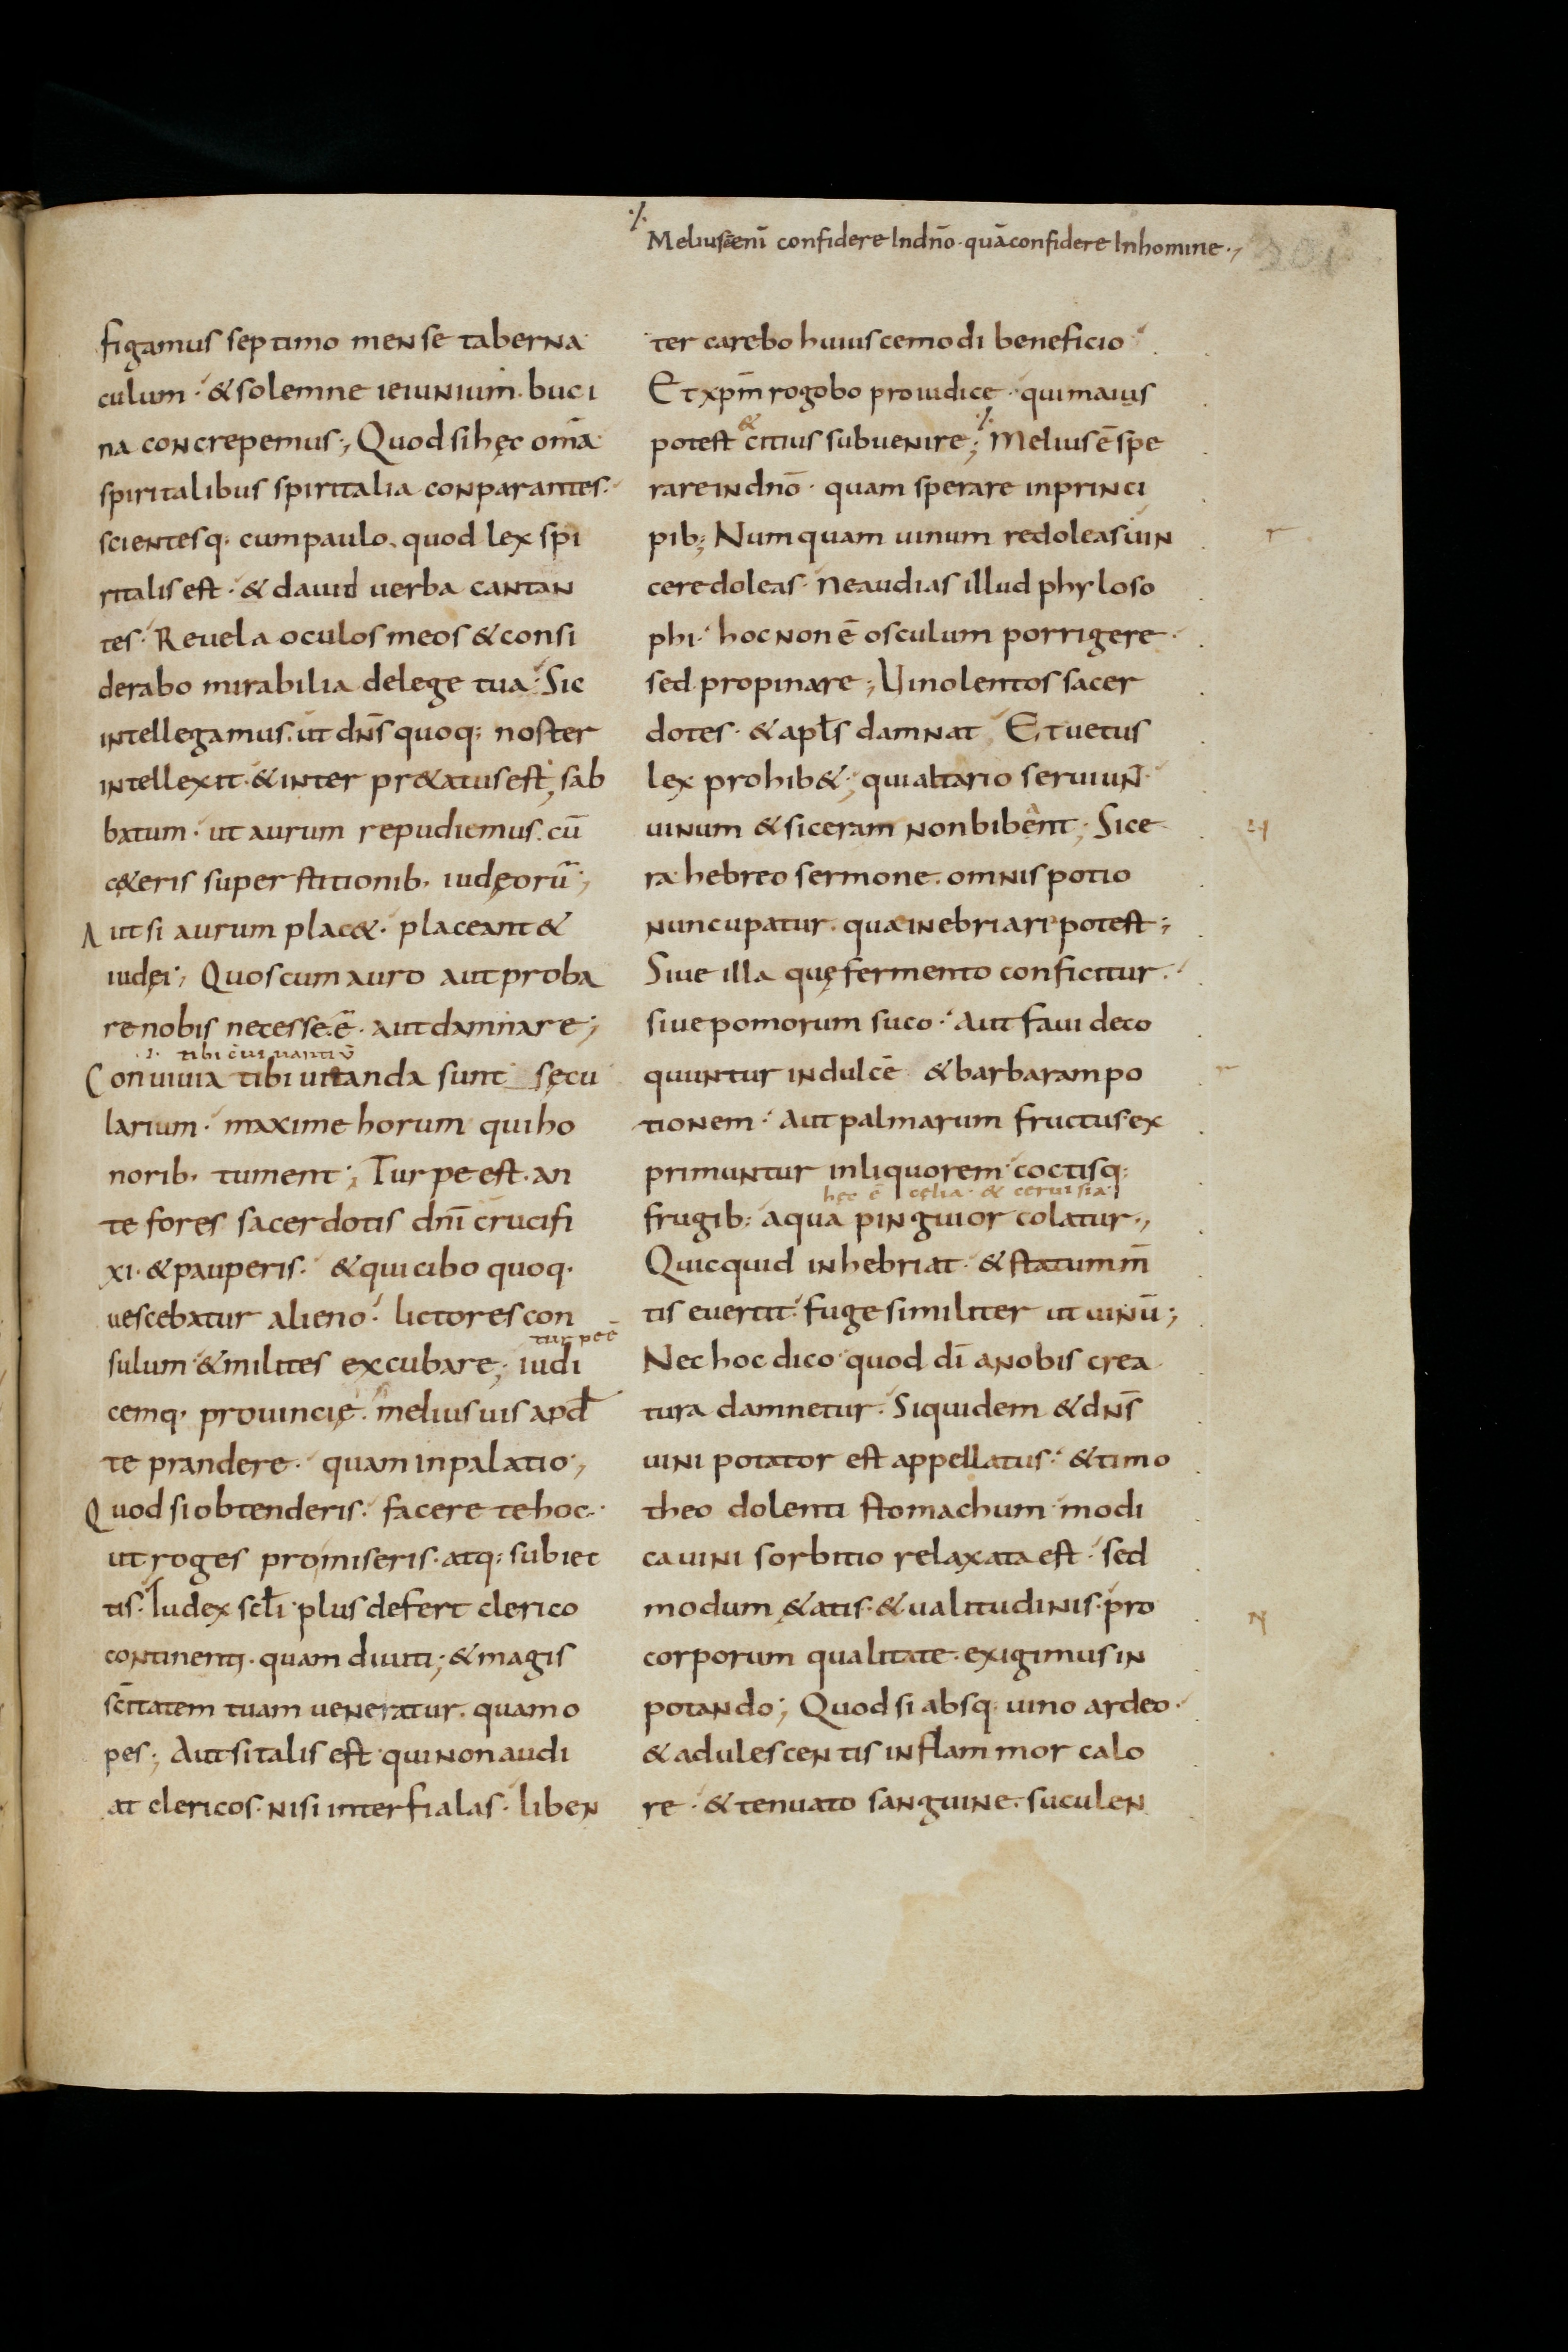 ⁒ Meliusẽ enī confidere In dn̄o · quā confidere In homine ·,
301
figamus septimo mense taberna
culum · & solemne ieiunium · buci
na concrepemus ; Quod si hęc om̄a
spiritalibus spiritalia conparantes ·
scientesq· cum paulo · quod lex spi
ritalis est · & dauid uerba cantan
tes · Reuela oculos meos & consi
derabo mirabilia de lege tua · Sic
intellegamus · ut dn̄s quoq; noster
intellexit · & interpr&atus est ; sab
batum · ut aurum repudiemus · cū
c&eris superstitionib· iudęorū ;
Aut si aurum plac& · placeant &
iudęi ; Quos cum auro aut proba
re nobis necesse ē · aut damnare ;
·i· tibi c̄uiuantiū
Conuiuia tibi uitanda sunt sęcu
larium · maxime horum qui ho
norib· tument ; Turpe est · an
te fores sacerdotis dn̄i crucifi
xi · & pauperis · & qui cibo quoq·
uescebatur alieno · lictores con
turpe ē
sulum · & milites excubare ; iudi
cemq· prouincię · melius uis apd̄
te prandere · quam in palatio ;
Quod si obtenderis · facere te hoc ·
ut roges pro miseris · atq; subiec
tis · Iudex scl̄i plus defert clerico
continenti · quam diuiti ; & magis
sc̄itatem tuam ueneratur · quam o
pes ; Aut si talis est qui non audi
at clericos · nisi inter fialas · liben
ter carebo huiuscemodi beneficio
Et xp̄m rogobo pro iudice · qui maius
&
potest citius subuenire ; ⁒ Melius ē spe
rare in dn̄o · quam sperare in princi
pib; Numquam uinum redoleas · uin
cere doleas · Ne audias illud phyloso
phi · hoc non ē osculum porrigere ·
sed propinare ; Uinolentos sacer
dotes · & apl̄s damnat Et uetus
lex prohib& ; qui altario seruiun̄ ·
uinum & siceram non bibent ; Sice
ra hebreo sermone · omnis potio
nuncupatur · quæ inebriari potest ;
Siue illa quę fermento conficitur ·
siue pomorum suco · Aut faui deco
quuntur in dulcē & barbaram po
tionem · Aut palmarum fructus ex
primuntur in liquorem · coctisq·
hęc ē cęlia · & ceruisia
frugib; aqua pinguior colatur ·,
Quicquid inhebriat · & statum m̄
tis euertit · fuge similiter ut uinū ;
Nec hoc dico quod dī a nobis crea
tura damnetur · Siquidem & dn̄s
uini potator est appellatus · & timo
theo dolenti stomachum modi
ca uini sorbitio relaxata est · sed
modum &atis · & ualitudinis · pro
corporum qualitate · exigimus in
potando ; Quod si absq· uino ardeo ·
& adulescentis inflammor calo
re · & tenuato sanguine · suculen